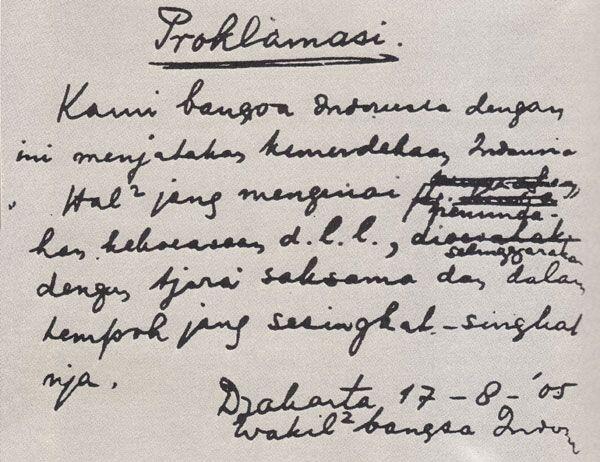 Proklamasi.
Kami bangsa Indonesia dengan
ini menjatakan kemerdekaan Indonesia
. Hal² jang mengenai
peminda-
han kekoeasaan d.l.l., dioesahakan
diselenggarakan
dengan tjara saksama dan dalam
tempoh jang sesingkat-singkat
nja.
Djakarta 17 - 8 - '05
Wakil² bangsa Indon